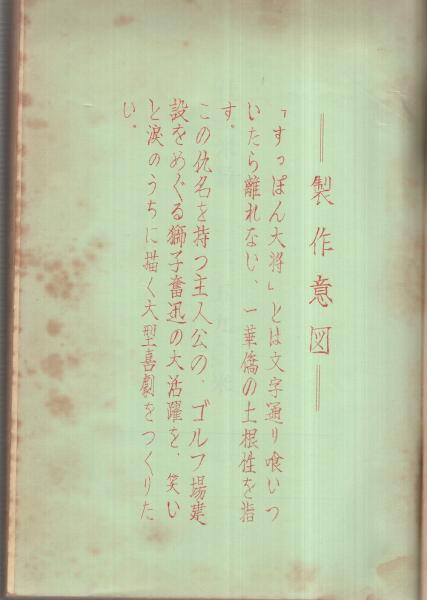 ―製作意図―
「すっぽん大将」とは文字通り喰いつ
いたら離れない、一華僑の土根性を指
す。
この仇名を持つ主人公の、ゴルフ場建
設をめぐる獅子奮迅の大活躍を、笑い
と涙のうちに描く大型喜劇をつくりた
い。